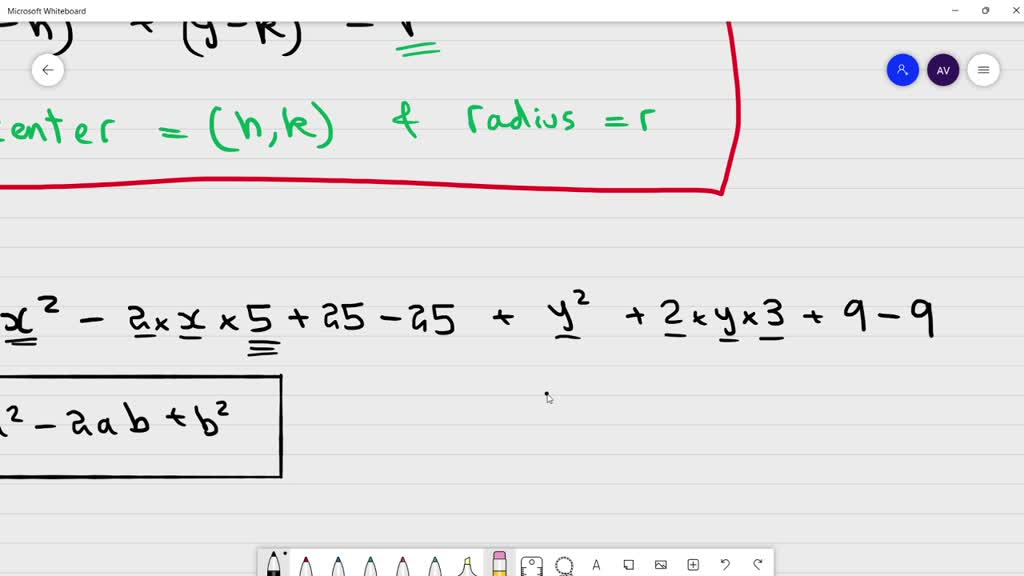 Microsoft Whiteboard
AV
(y-k)
= (h,k) & radius = r
x² - 2 × x × 5 + 25 - 25 + y² + 2 × y × 3 + 9 - 9
² - 2ab + b²
A